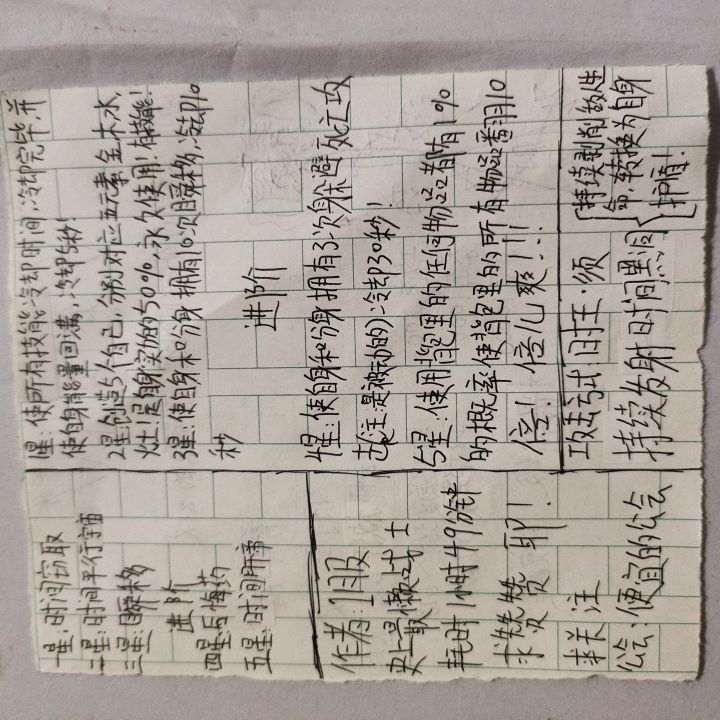 一星:时间窃取
二星:时间平行宇宙
三星:瞬移
进阶
四星后悔药
五星:时间所帝
作者:1日及
史上最懒
耗时1小时49分钟
求先赞 耶!
求关注
公会:便宜的公会
1星:使所有技能冷却时间,冷却完毕,并
使自身能量回满,冷却5秒!
2星创造5个自己,分别对应五元素金木水,
灶!是自身实力的50%,永久使用!有技能!
3星:使自身和分身拥有10次瞬移,冷却10
秒
进阶
4星:使自身和分身拥有3次躲避死亡攻
击(注:是被动的)冷却30秒!
5星:使用背包里的任何物品都有1%
的概率使背包里的所有物品番羽10
倍!倍儿爽!!!
攻击方式 时王:须
持续发射时间黑洞
持续剥削敌人生
命,转换为自身
护盾!